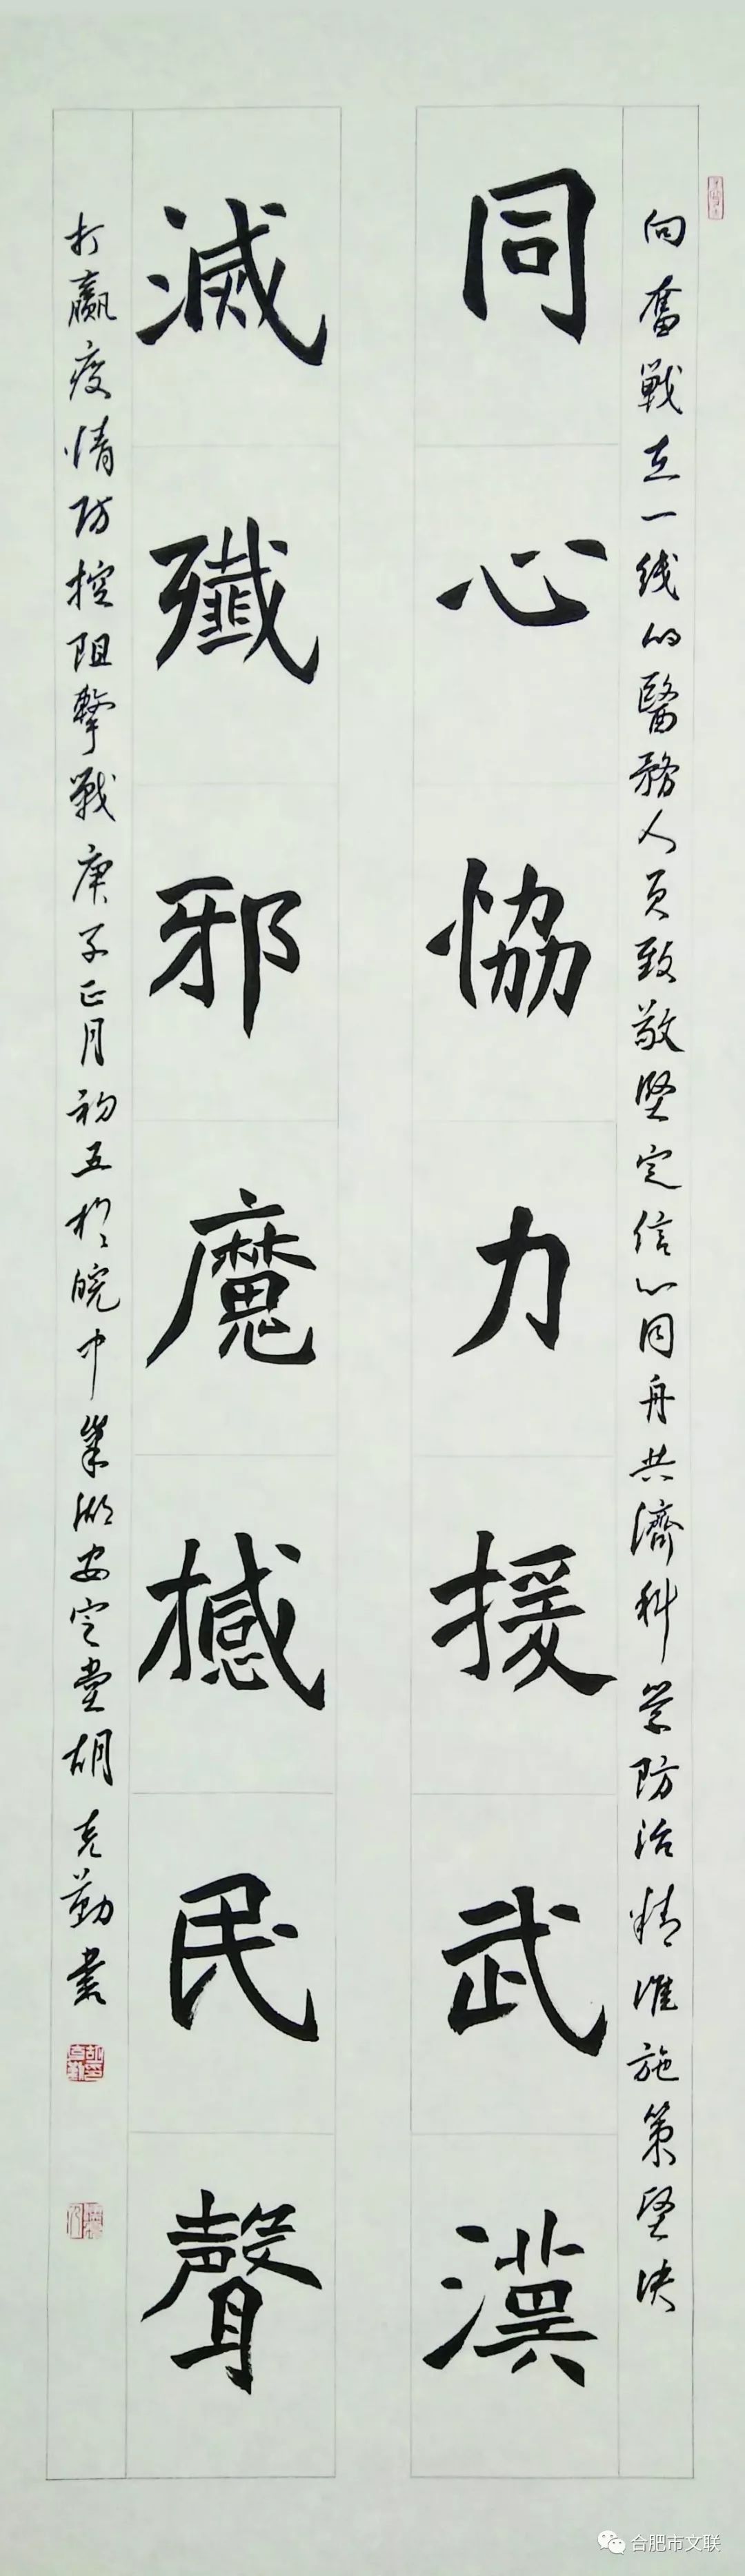 向奮戰在一线的醫務人员致敬坚定信心同舟共濟科学防治精准施策坚决
同心恊力援武漢
滅殲邪魔撼民聲
打赢疫情防控阻擊戰庚子正月初五於皖中巢湖安定堂胡克勤書
合肥市文联